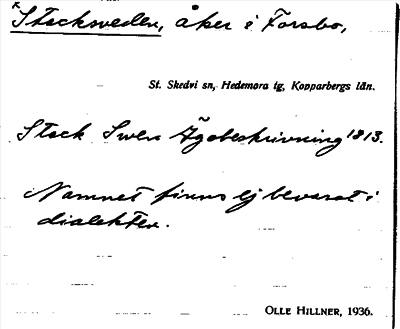 *Stocksveden, åker i Forsbo,
St. Skedvi sn, Hedemora tg, Kopparbergs län.
Stock Swen Ägobeskrivning 1813.
Namnet finns ej bevarat i
dialekten.
OLLE HILLNER, 1936.